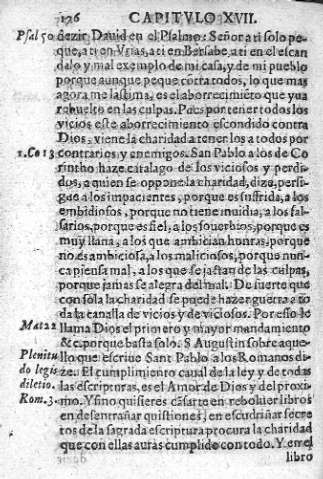 176 CAPITVLO XVII.
Psal 50 dezir Dauid en el Psalmo: Señor a ti solo pe-
que, a ti en Vrias, a ti en Bersabe, a ti en el escan
dalo y mal exemplo de mi casa, y de mi pueblo
porque aunque peque cõtra todos, lo que mas
agora me lastima, es el aborrecimiẽto que yua
rebuelto en las culpas. Pues por tener todos los
vicios este aborrecimiento escondido contra
Dios, viene la charidad a tener los a todos por
1. Co 13 contrarios y enemigos. San Pablo a los de Co
rintho haze catalago de los viciosos y perdi-
dos, a quien se oppone la charidad, dize, persi-
gue a los impacientes, porque es sufrida, a los
embidiosos, porque no tiene inuidia, a los fal-
sarios, porque es fiel, a los souerbios, porque es
muy llana, a los que ambician honras, porque
no es ambiciosa, a los maliciosos, porque nun-
ca piensa mal, a los que se jactan de las culpas,
porque jamas se alegra del mal. De suerte que
con sola la charidad se puede hazer guerra a to
da la canalla de vicios y de viciosos. Por esso le
Mat 22 llama Dios el primero y mayor mandamiento
&c. porque basta solo. S Augustin sobre aque-
Plenitu llo que escriue Sant Pablo a los Romanos di-
do legis ze. El cumplimiento caual de la ley y de todas
dilectio. las escripturas, es el Amor de Dios y del proxi-
Rom. 3. mo. Y sino quisieres cãsarte en reboluer libros
en desentrañar quistiones, en escudriñar secre
tos de la sagrada escriptura procura la charidad
que con ella auras cumplido con todo. Y en el
libro